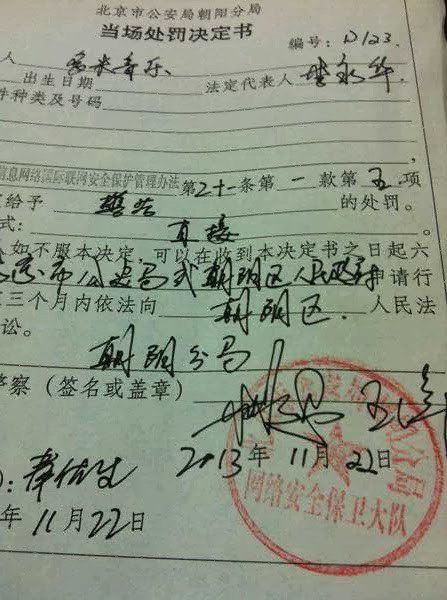 北京市公安局朝阳分局
当场处罚决定书
编号：D123.
人 多米音乐 法定代表人
出生日期
件种类及号码
信息网络国际联网安全保护管理办法第二十一条第一款第五项
给予 警告 的处罚。
式： 直接 。
如不服本决定，可以在收到本决定书之日起六
市公安局或朝阳区人民政府申请行
三个月内依法向 朝阳区. 人民法
讼。
朝阳分局
警察（签名或盖章）
2013年11月22日
网络安全保卫大队
年11月22日